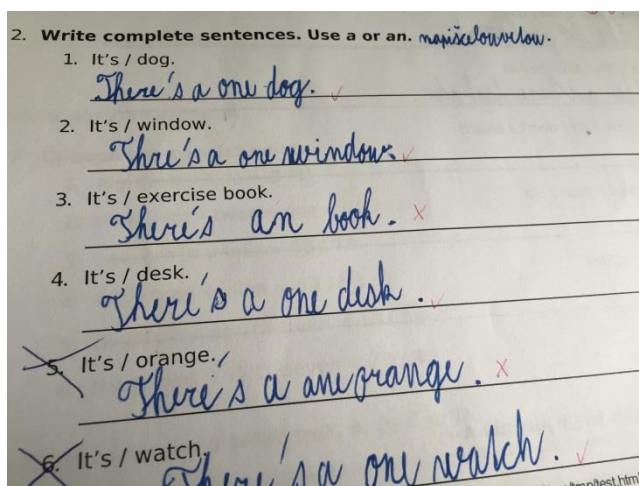 2. Write complete sentences. Use a or an. napiš celou větou.
1. It's / dog.
There's a one dog.
2. It's / window.
Thre's a one window.
3. It's / exercise book.
There's an book.
4. It's / desk.
There's a one desk.
5. It's / orange.
There's a ane orange.
6. It's / watch.
There's a one watch.
/tmp/test.html